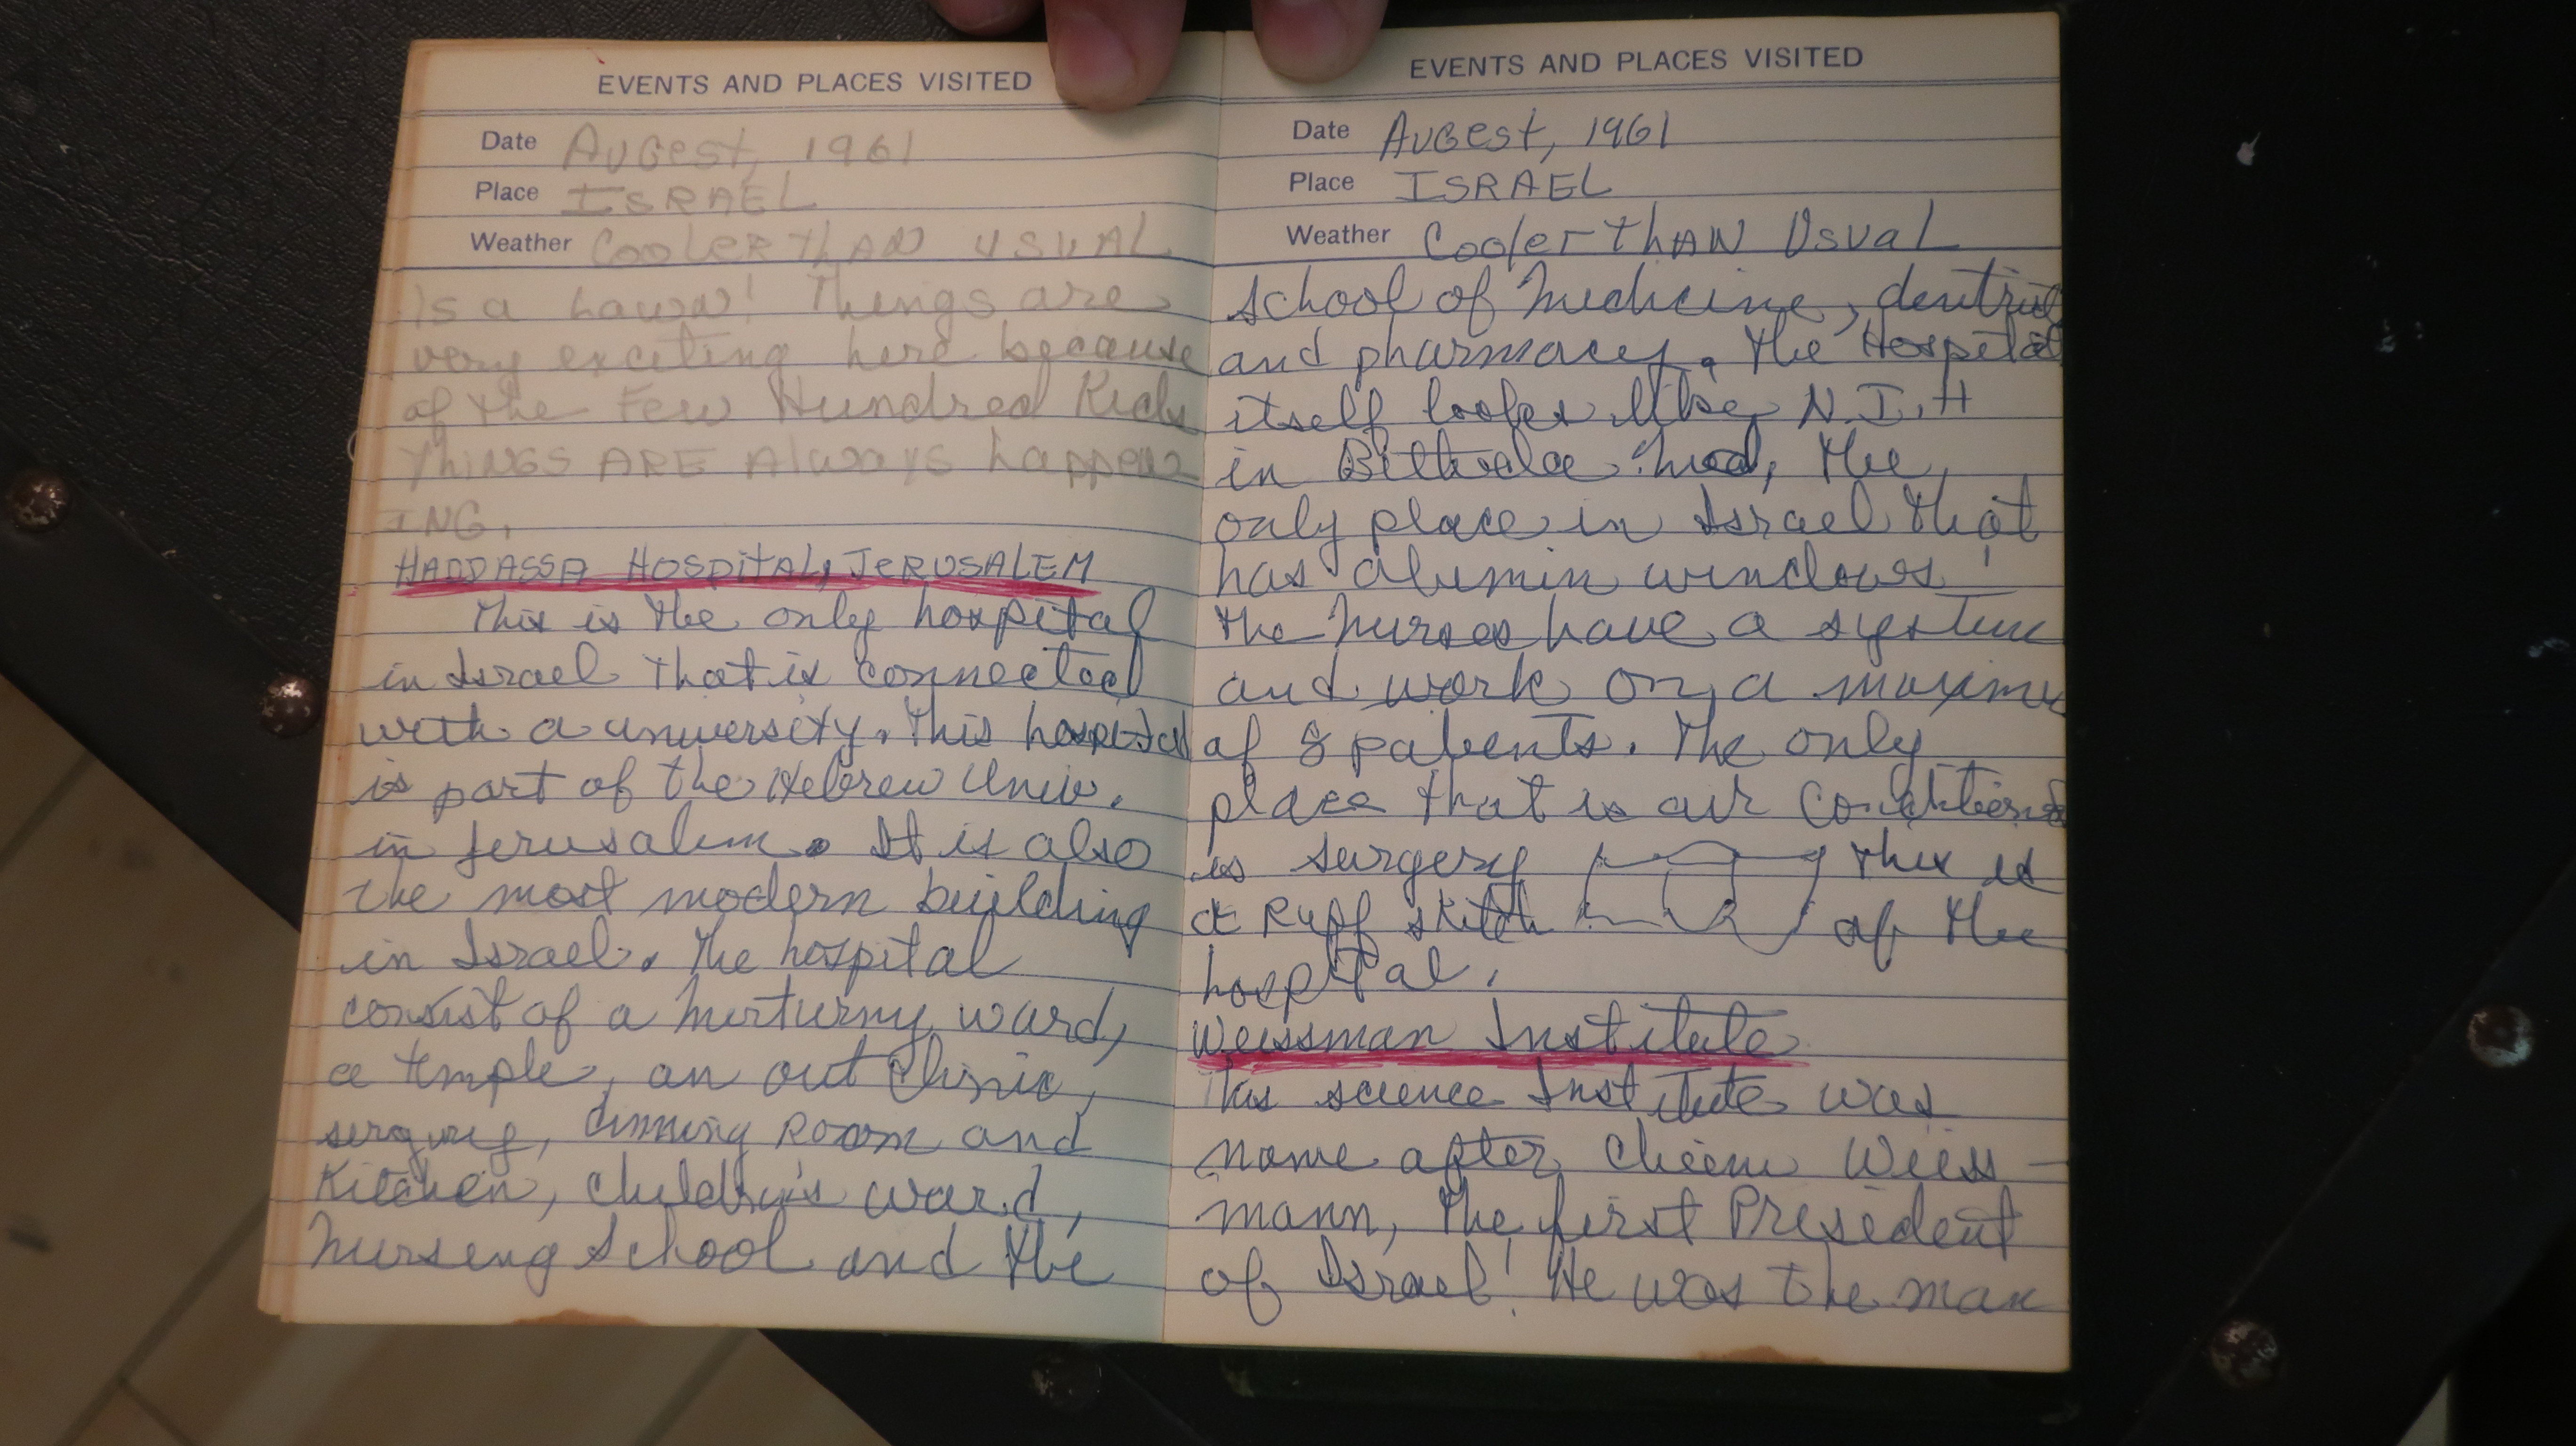 EVENTS AND PLACES VISITED
Date Augest, 1961
Place ISRAEL
Weather Cooler thAN USUAL
is a Things are
very exciting here because
of the Few Hundred Kids
ThiNGS ARE Always happen
ING.
HADDASSA HOSpitAL, JeRUSALEM
This is the only hospital
in Israel that is connected
with a university. This hospital
is part of the Hebrew Univ.
in Jerusalem. It is also
the most modern building
in Israel. The hospital
consist of a ward,
a temple, an out Clinic,
dinning Room and
Kitchen, ward,
Nurseing School and the
EVENTS AND PLACES VISITED
Date AUGest, 1961
Place ISRAEL
Weather Cooler thAN UsuaL
School of Medicine,
and pharmacy. The Hospital
itself looks like N.I.H
in the
only place in Israel that
has alumin windows!
The Nurses have a
and work on a
of 8 patients. The only
place that is air
is surgery This is
a Ruff of the
hospital.
Weissman Institute
This science Institute was
name after Weiss-
mann, the first President
of Israel! He was the man